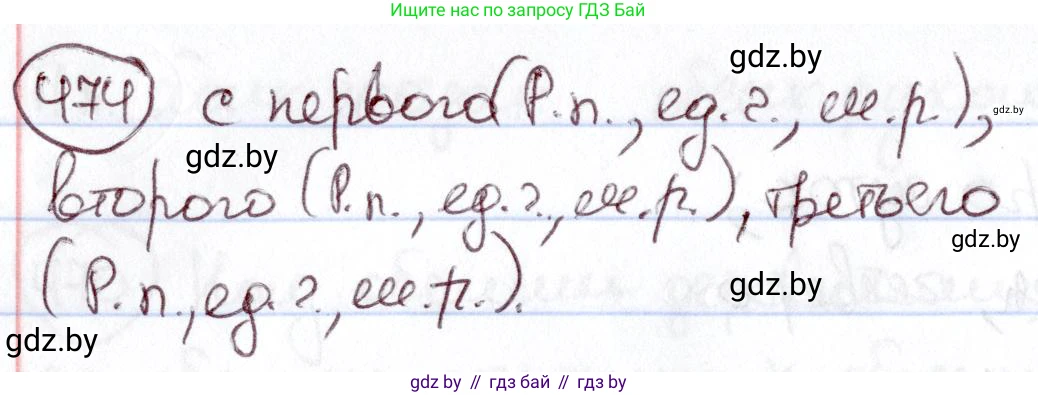 Ищите нас по запросу ГДЗ Бай
gdz.by
474 с первого (Р.п., ед.ч., м.р.), gdz.by
gdz.by
второго (Р.п., ед.ч., м.р.), третьего
gdz.by
(Р.п., ед.ч., м.р.).
gdz.by
gdz.by
gdz by // гдз бай // гдз by